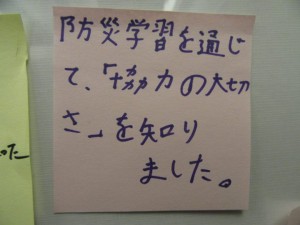 防災学習を通じ
て、「協力の大切
さ」を知り
ました。
った